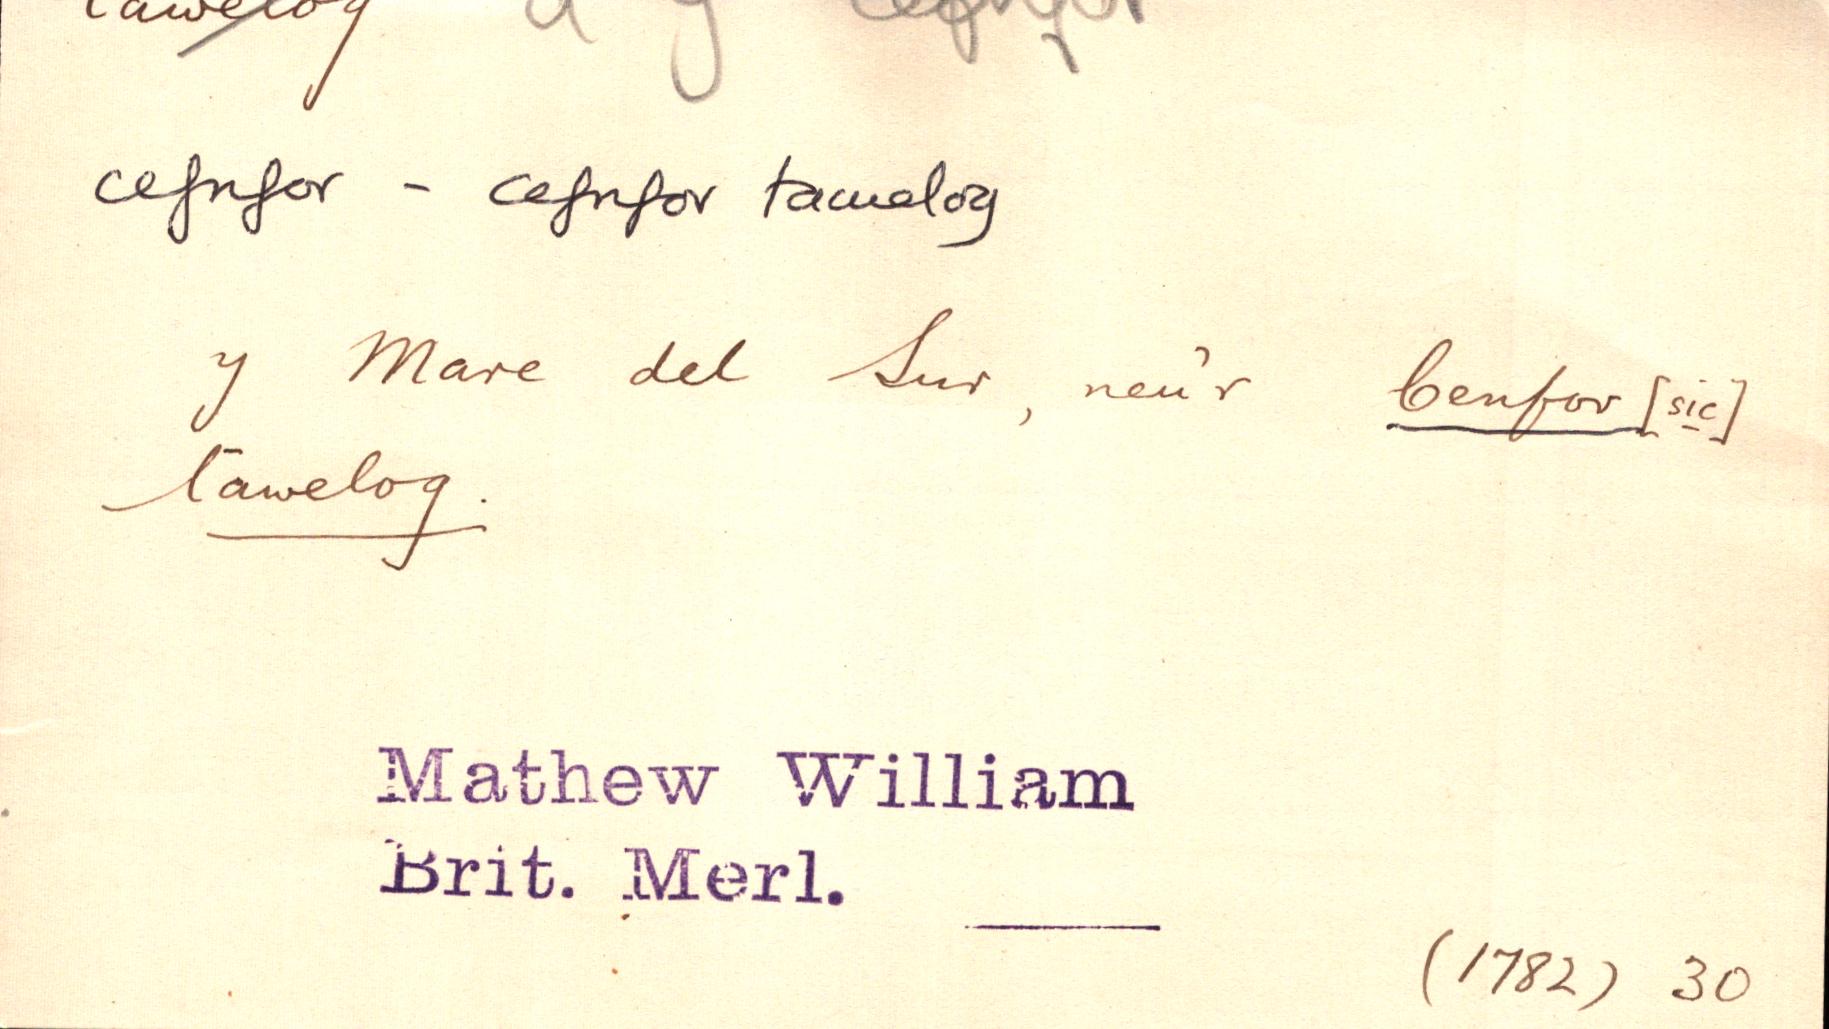 tawelog a y cefnfor
cefnfor - cefnfor tawelog
y Mare del Sur, neu'r Cenfor [sic]
Tawelog.
Mathew William
Brit. Merl.
(1782) 30